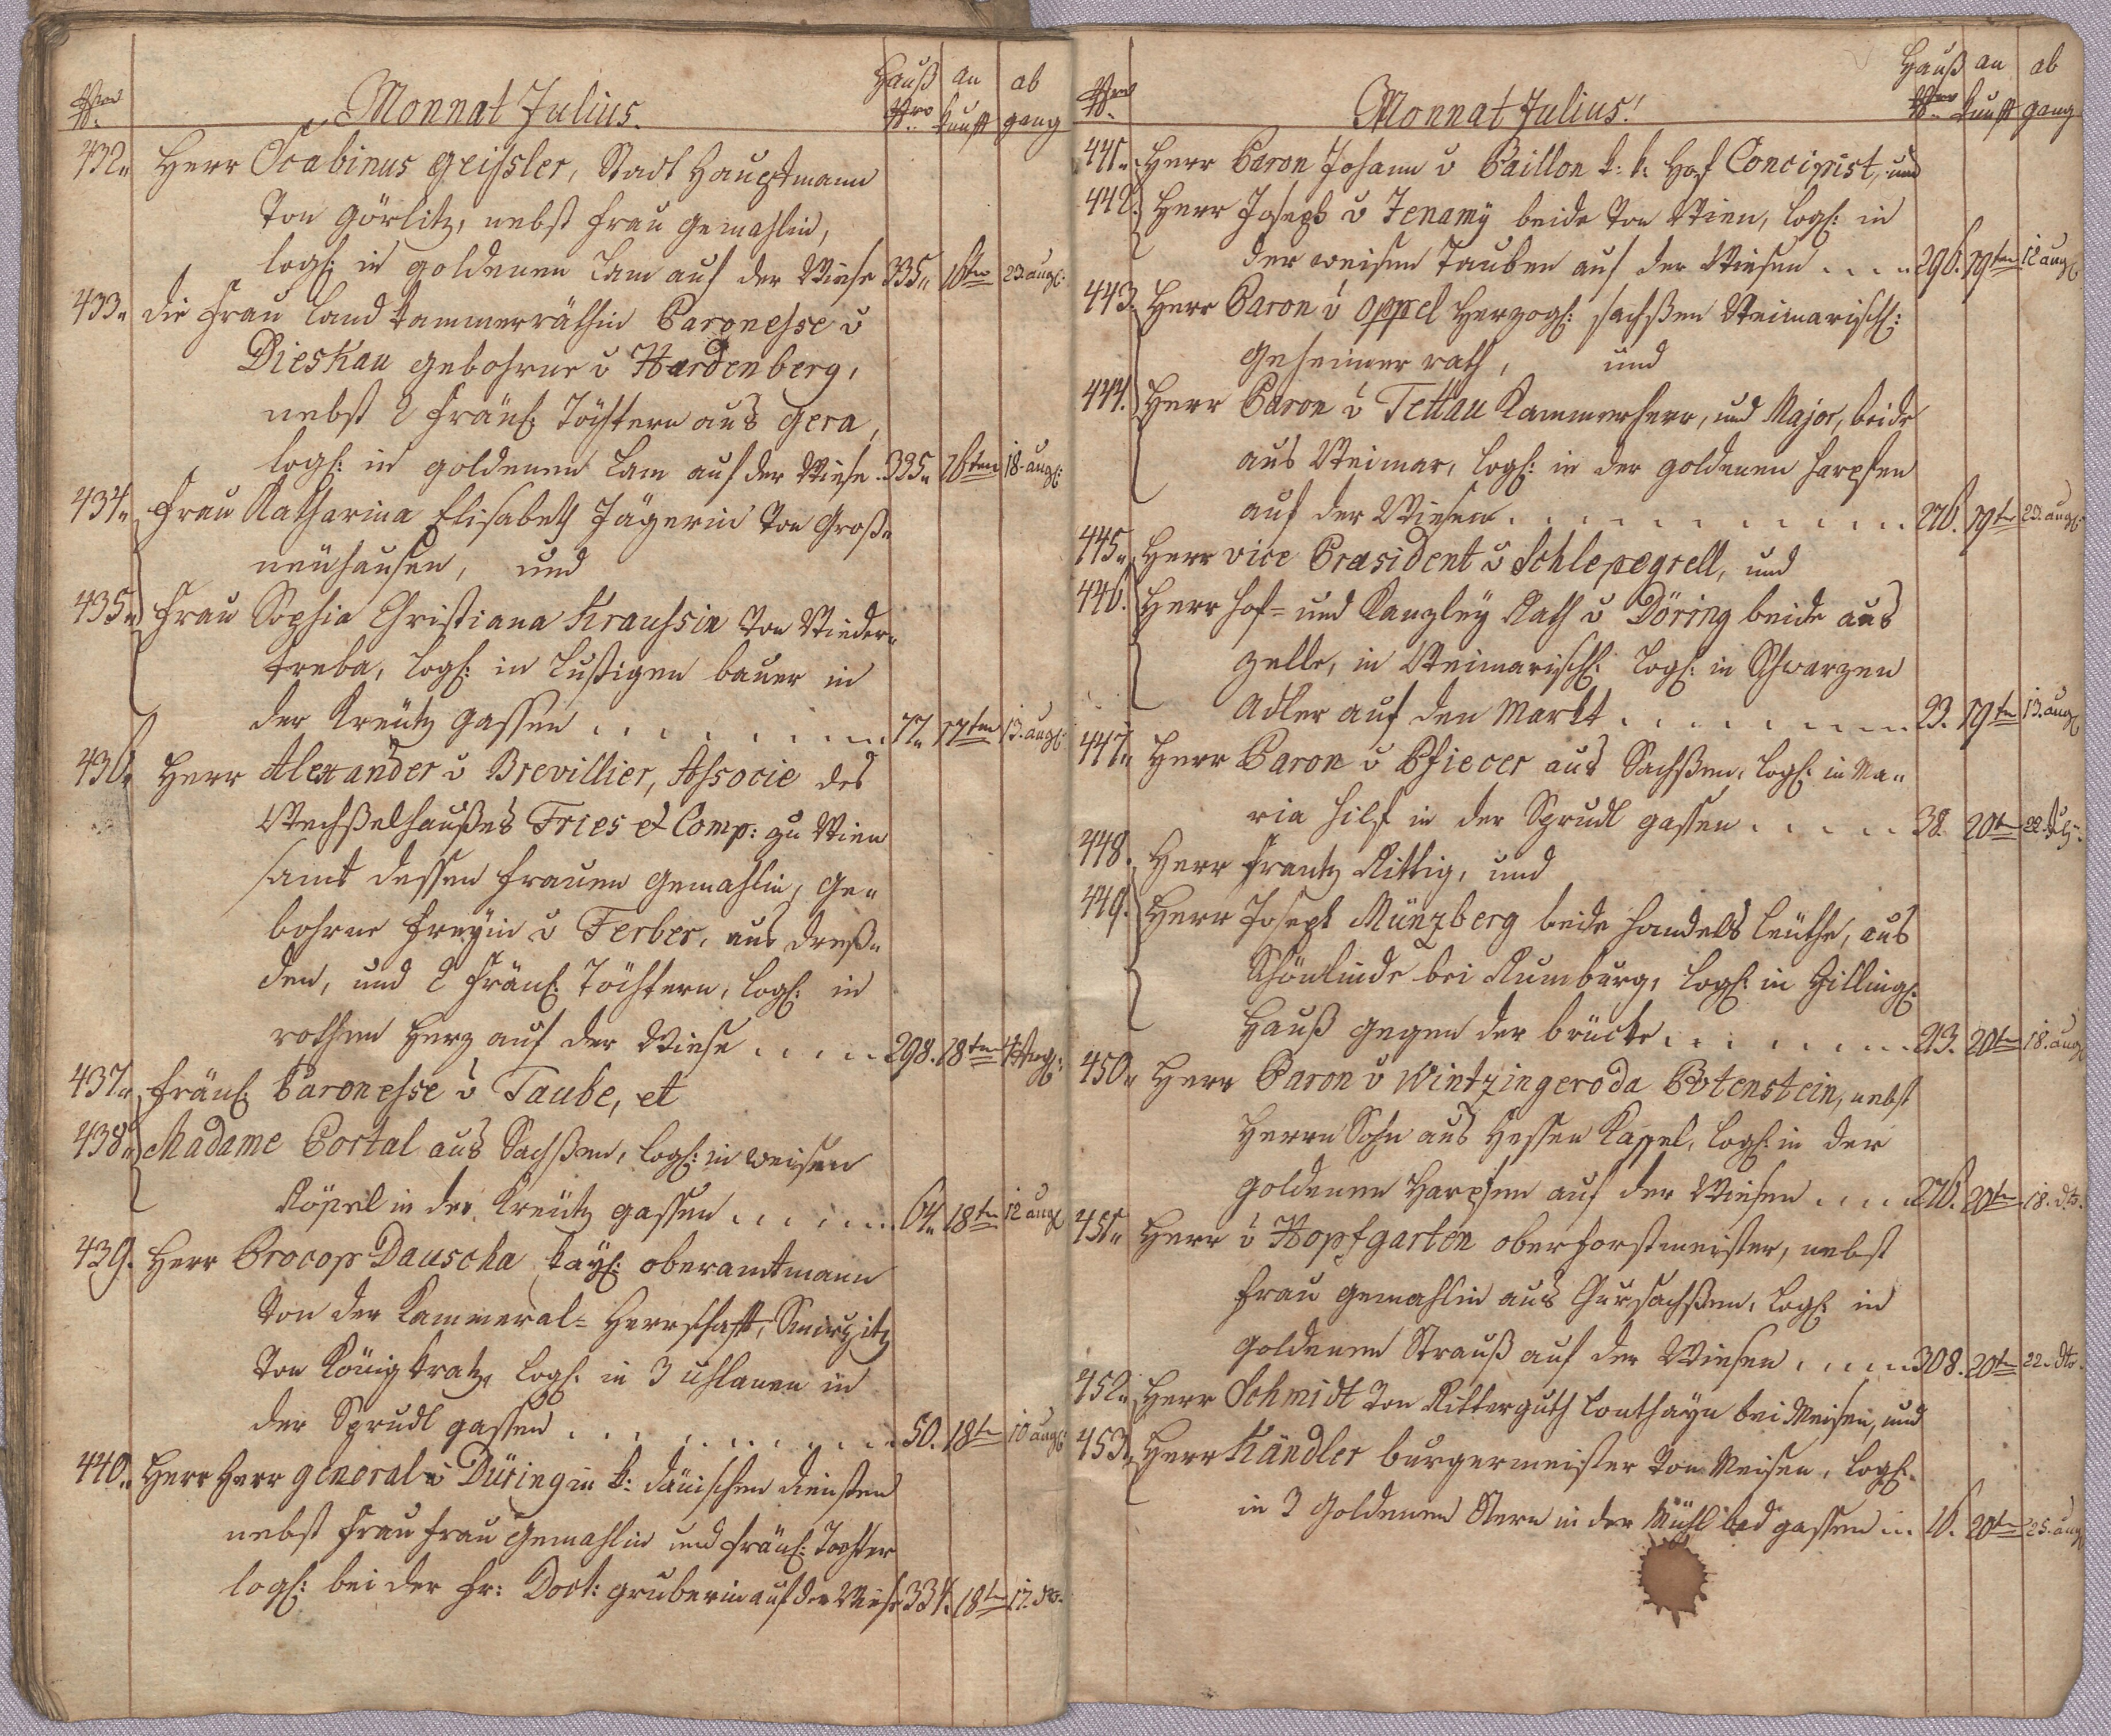 Nro Monnat Julius. Hauß Nro an kunft ab gang
432„ Herr Scabinus Geißler, Stadt Hauptmann
von Görlitz, nebst Frau Gemahlin,
logh: in goldenen Lam auf der Wiese 335„ 16ten 23 augs:
433„ die Frau Land Kammerräthin Baronesse v
Dieskau gebohrne v Hardenberg,
nebst 2 Fräul: Töchtern aus Gera,
logh: in goldenen Lam auf der Wiese . 335„ 16ten 18. augs:
434„ Frau Katharina Elisabeth Jägerin von Groß„
neühausen, und
435„ Frau Sophia Christiana Kraußin von Nieder„
treba, logh: in lustigen bauer in
der Kreutz gassen . . . . . . . 77„ 17ten 13. augs:
436„ Herr Alexander v Brevillier, Associe des
Wechßelhaußes Fries et Comp: zu Wien
samt dessen Frauen Gemahlin, ge„
bohrne Freyin v Ferber, aus Dreß„
den, und 2 Fräul: Töchtern, logh: in
rothen Herz auf der Wiese . . . . . 298. 18ten
437„ Fräul: Baronesse v Taube, et
438„ Madame Portal aus Sachßen, logh: in weisen
Rößel in der Kreutz gassen . . . . . . 64„ 18ten 12 augs
439. Herr Procop Dauscha kayl: oberamtmann
von der Kammeral-Herrschafft, Smirzitz
von Königkratz, logh: in 3 uhlanen in
der Sprudl gassen . . . . . . . . . 50. 18ten 10 augs:
440„ Herr Herr General v Düring in k: dänischen diensten
nebst Frau Frau Gemahlin und Fräul: Tochter
logh: bei der Fr: Doct: Gruberin auf der Wiese 334. 18ten 17. dto.
Nro Monnat Julius! Hauß Nro an kunft ab gang
441„ Herr Baron Johann v Baillon k: k: Hof Concipist, und
442. Herr Joseph v Jenamÿ beide von Wien, logh: in
der weisen Tauben auf der Wiesen . . . . 296. 19ten 12 augs
443. Herr Baron v Oppel Herzogh: sachßen Weimarisch:
Geheimer rath, und
444. Herr Baron v Tettau Kammerherr, und Major, beide
aus Weimar, logh: in der goldenen Harpfen
auf der Wiesen . . . . . . . . . . . 276. 19ten 23. augs:
445„ Herr vice Præsident v Schlepegrell, und
446. Herr Hof- und Kanzleÿ Rath v Döring beide aus
Zelle, in Weimarisch: logh: in Schwarzen
Adler auf den Markt . . . . . . . . . 23. 19ten 13. augs
447„ Herr Baron v Pfiecer aus Sachßen, logh: in Ma„
ria hilf in der Sprudl gassen . . . . . 38. 20ten 22. July.
448. Herr Frantz Rittig, und
449. Herr Joseph Münzberg beide Handels leüthe, aus
Schönlinde bei Rumburg, logh: in Zillingh:
Hauß gegen der brücke . . . . . . . . 213. 20ten 18. augs
450„ Herr Baron v Wintzingeroda Botenstein, nebst
Herrn Sohn aus Hessen Kaßel, logh: in der
goldenen Harpfen auf der Wiesen . . . . 276. 20ten 18. dto.
451„ Herr v Hopfgarten oberforstmeister, nebst
Frau Gemahlin aus Chursachßen, logh: in
goldenen Strauß auf der Wiesen . . . . . 308. 20ten 22. dto.
452„ Herr Schmidt von Ritterguth Lonthaÿn bei Meisen, und
453„ Herr Kändler burgermeister von Meisen, logh:
in 3 goldenen Stern in der Mühlbad gassen . . 16. 20ten 25. aug